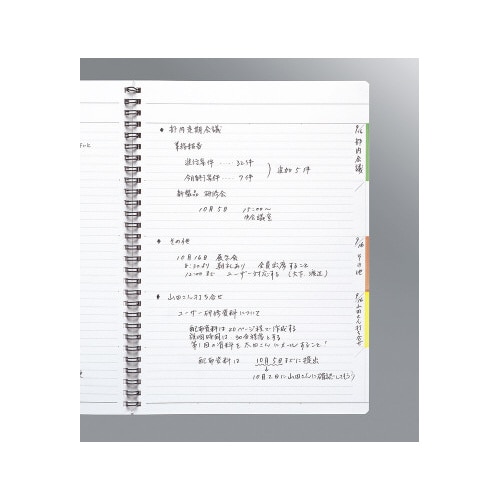 ◆ 部内定期会議
業務報告
進行案件 ‥‥ 32件
今月新行案件 ‥‥ 7件
追加5件
新製品 研修会
10月5日 15:00〜
中会議室
◆ その他
10月16日 展示会
8:30より 朝礼あり 全員出席すること
12:00より ユーザー対応する(大下、渡辺)
◆ 山田さん打ち合せ
ユーザー研修資料について
配布資料は20ページ程で作成する
説明時間は30分程度とする
第1回の資料を太田さんにメールすること!
配布資料は 10月5日までに提出
↓
10月2日に山田さんに確認してもらう
9/16 部内会議
9/16 その他
9/16 山田さん打ち合せ